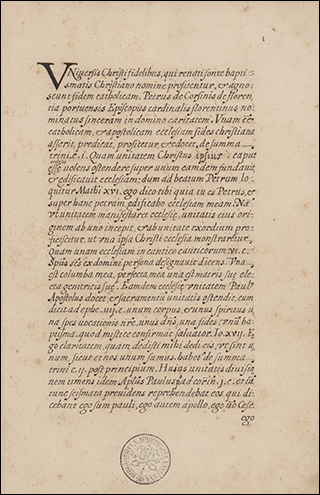 Vniversis Christi fidelibus, qui renati fonte bapti-
smatis Christiano nomine profitentur, & agno-
scunt fidem catholicam. Petrus de Corsinis de floren-
tia portuensis Episcopus cardinalis florentinus no-
minatus sinceram in domino caritatem. Vnam eē
catholicam, & apostolicam ecclesiam fides christiana
asserit, predicat, profitetur, & docet, de summa
trini. c. i. Quam unitatem Christus ipsius caput
esse volens ostendere super unum eamdem fundavit
& edificavit ecclesiam; dum ad beatum Petrum lo-
quitur Mathi xvi. ego dico tibi quia tu es Petrus, &
super hanc petram edificabo ecclesiam meam. Na
vt unitatem manifestaret ecclesię, unitatis eius ori-
ginem ab uno incepit, & ab unitate exordium pro-
ficiscitur, ut vna ipsa Christi ecclesia monstraretur,
Quam unam ecclesiam in cantico canticorum vi. c.
Spūs scs ex domini persona designavit dicens. Vna
est columba mea, perfecta mea una est matris suę ele-
cta genitricis suę. Eamdem ecclesię vnitatem Paulꝰ
Apostolus docet, & sacramentū unitatis ostendit, cum
dicit ad ephe. iiij. c. unum corpus, & unus spiritus u-
na spes vocationis nrę. unus dns, una fides, vnū ba-
ptisma. quod mistice confirmat salvator Io xvij. E-
go claritatem, quam dedisti mihi dedi eis, vt sint u-
num, sicut et nos unum sumus. habet de summa
trini c. ij. post principium. Huius unitatis divisio-
nem timens idem Apłus Paulus j ad corin. j. c. et la-
tune scismata previdens reprehendebat eos qui di-
cebant ego sum pauli, ego autem apollo, ego vō Cefe.
ego